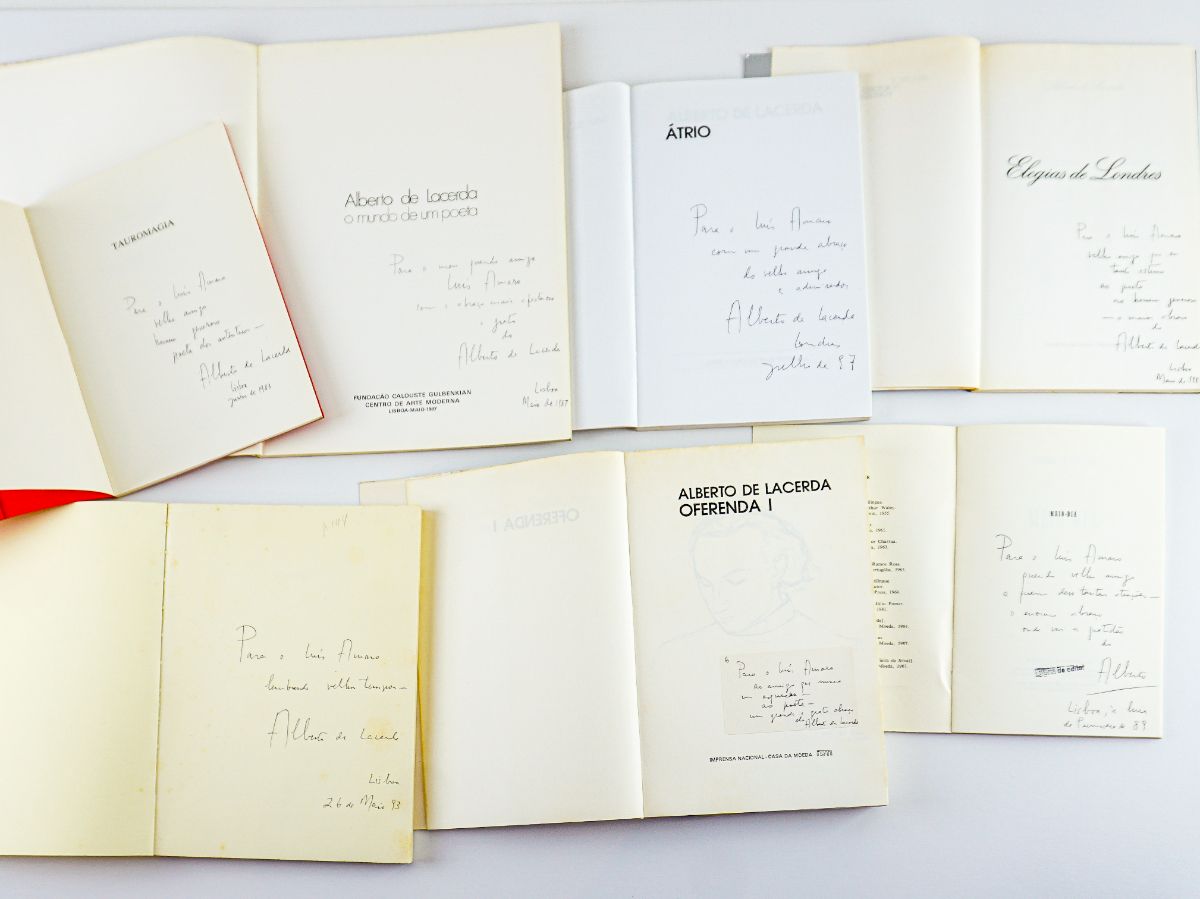 TAUROMAGIA
Para o Luís Amaro
velho amigo
homem generoso
poeta dos autênticos —
Alberto de Lacerda
Lisboa
Alberto de Lacerda
o mundo de um poeta
Para o meu grande amigo
Luís Amaro
com o abraço mais
e grato
do
Alberto de Lacerda
Lisboa
Maio de 1987
FUNDAÇÃO CALOUSTE GULBENKIAN
CENTRO DE ARTE MODERNA
LISBOA-MAIO-1987
ALBERTO DE LACERDA
ÁTRIO
Para o Luís Amaro
com um grande abraço
do velho amigo
e admirador
Alberto de Lacerda
Londres
julho de 97
Elegias de Londres
Para o Luís Amaro
velho amigo que eu
tanto estimo
ao poeta
ao homem generoso
— o maior abraço
do
Alberto de Lacerda
Lisboa
Maio de
Para o Luís Amaro
lembrando velhos tempos —
Alberto de Lacerda
Lisboa
26 de Maio 93
OFERENDA I
ALBERTO DE LACERDA
OFERENDA I
Para o Luís Amaro
ao amigo que nunca
ao poeta —
um grande e grato abraço
de Alberto de Lacerda
IMPRENSA NACIONAL - CASA DA MOEDA
MEIO-DIA
Para o Luís Amaro
grande velho amigo
a quem devo tantas atenções —
o enorme abraço
onde vai a gratidão
do
Alberto
Lisboa,
de Fevereiro de 89